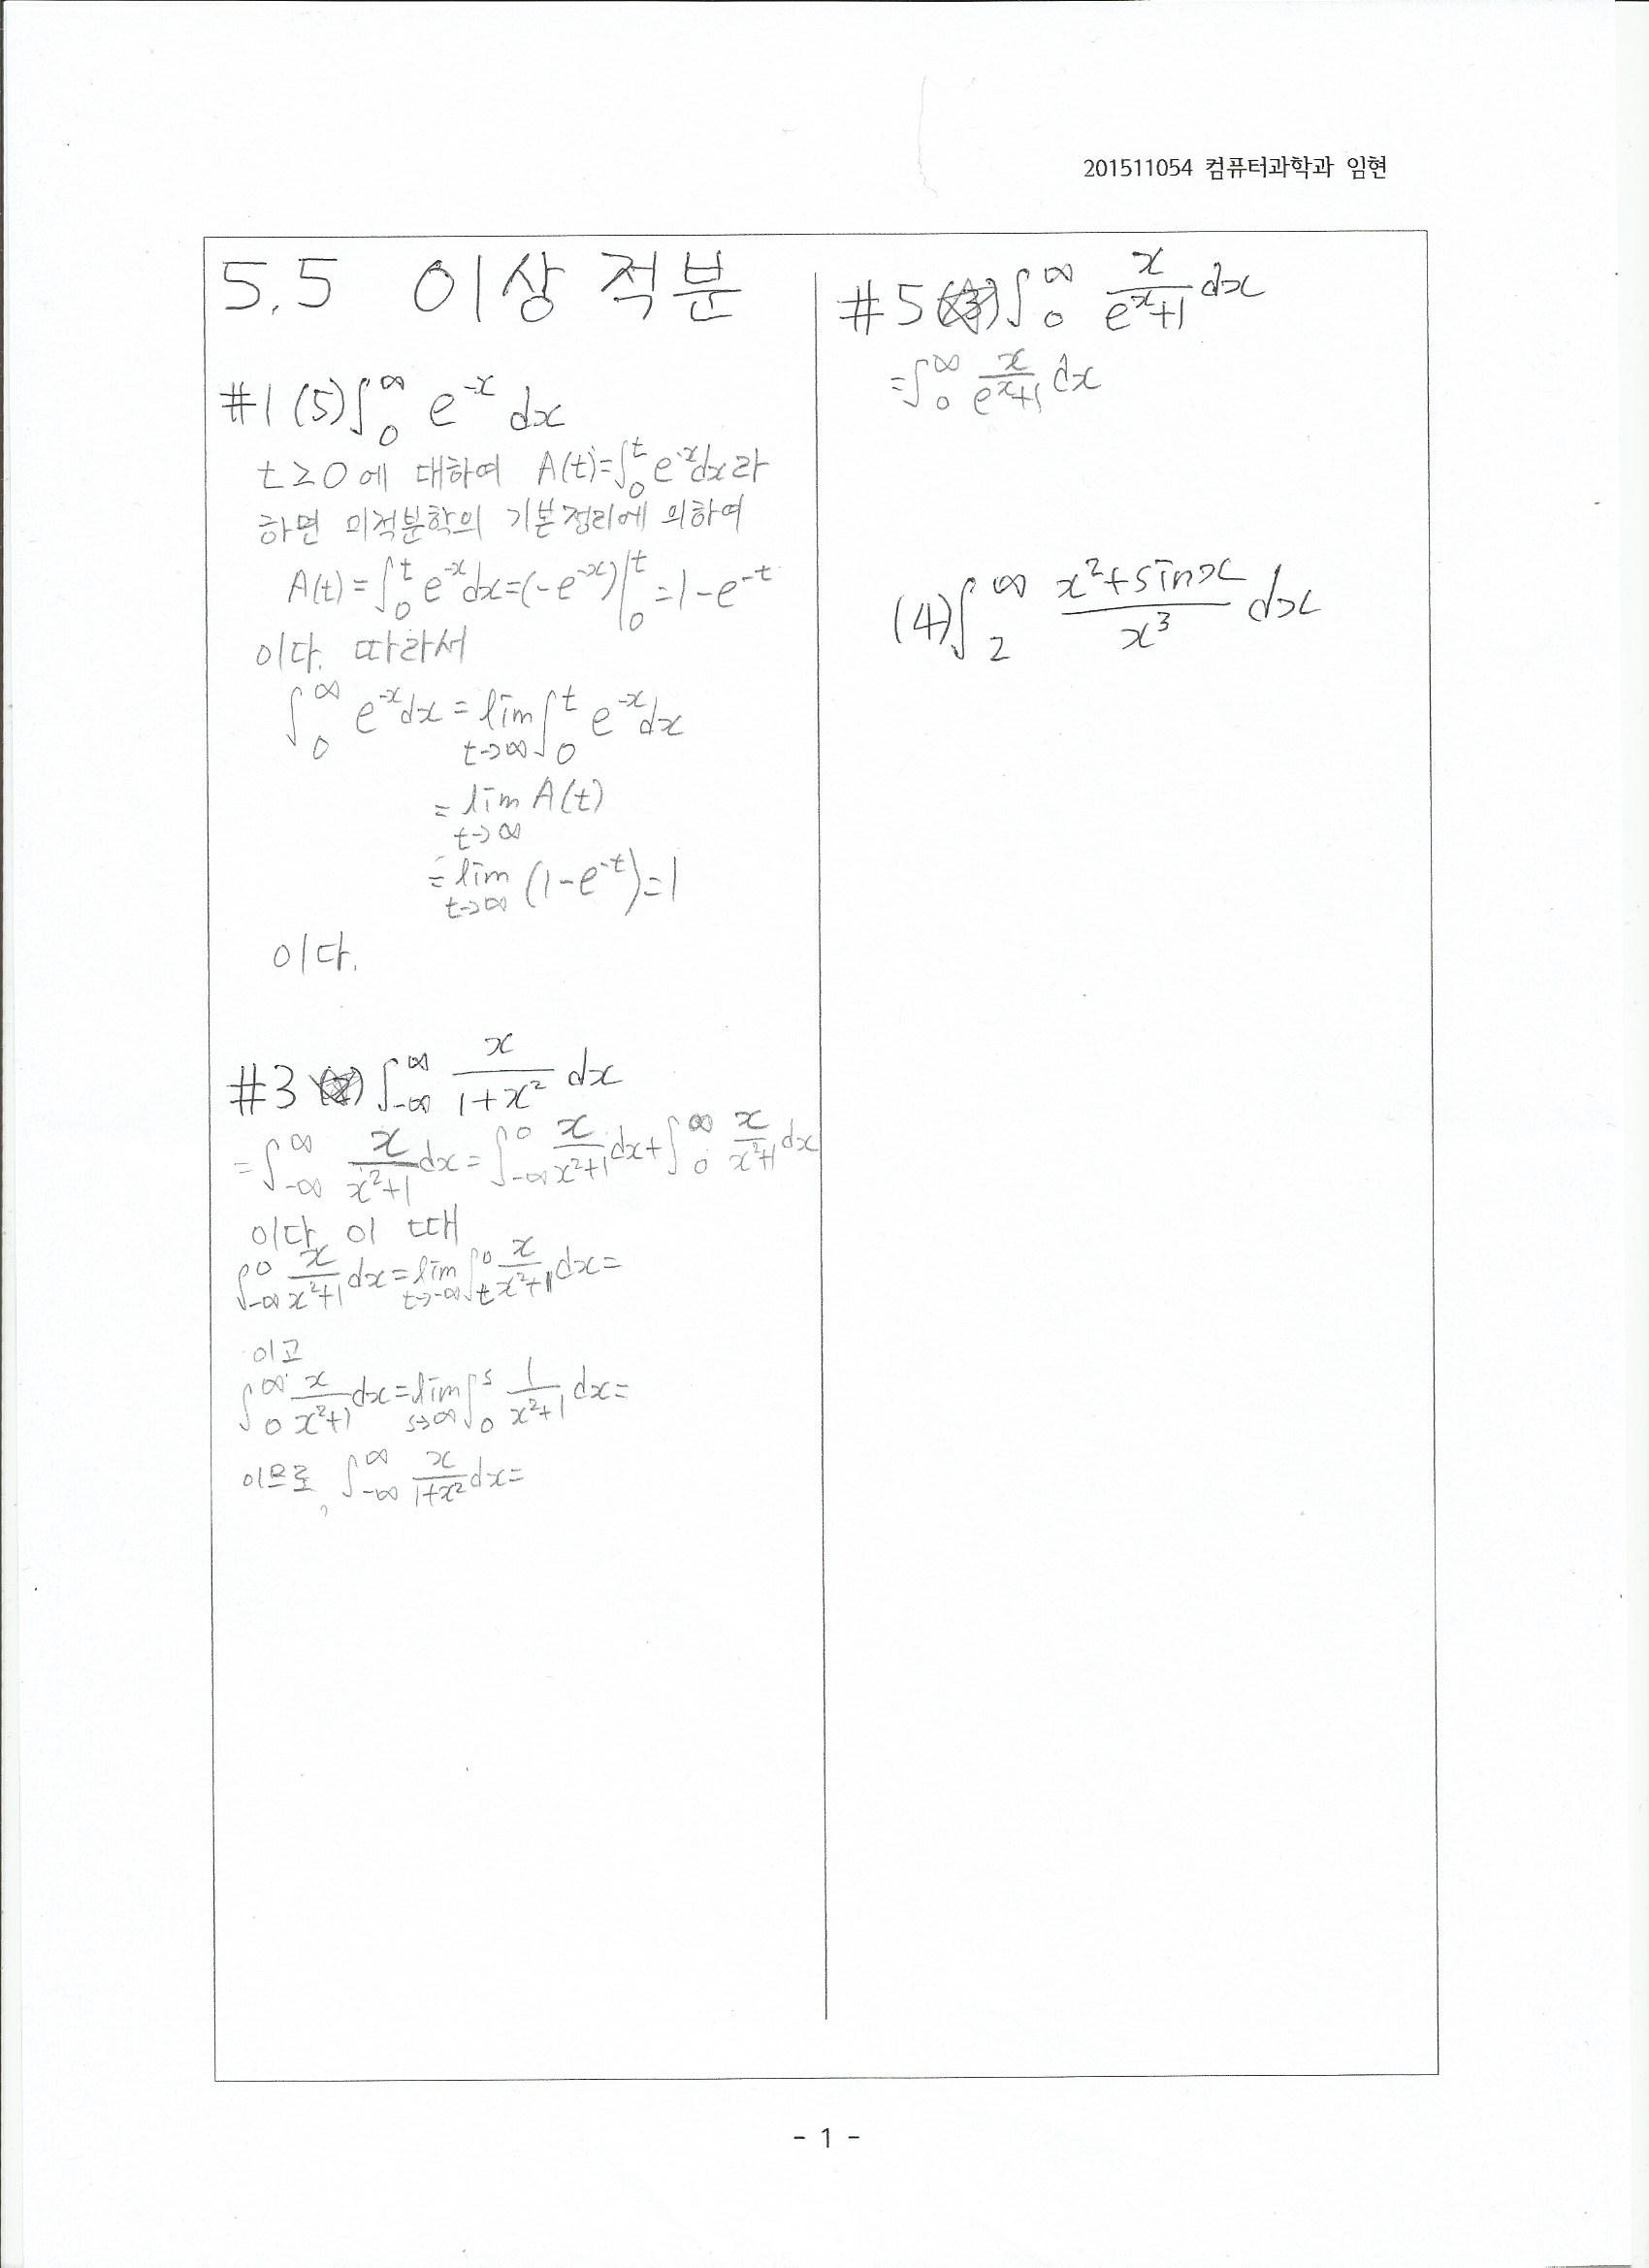 201511054 컴퓨터과학과 임현
5.5 이상적분
#1 (5) ∫₀^∞ e^{-x} dx
t≥0에 대하여 A(t)=∫₀^t e^{-x}dx라
하면 미적분학의 기본정리에 의하여
A(t)=∫₀^t e^{-x}dx=(-e^{-x})|₀^t=1-e^{-t}
이다. 따라서
∫₀^∞ e^{-x}dx=lim_{t→∞}∫₀^t e^{-x}dx
=lim_{t→∞} A(t)
=lim_{t→∞} (1-e^{-t})=1
이다.
#3 ∫_{-∞}^∞ x/(1+x²) dx
=∫_{-∞}^∞ x/(x²+1) dx=∫_{-∞}^0 x/(x²+1) dx+∫₀^∞ x/(x²+1) dx
이다 이 때
∫_{-∞}^0 x/(x²+1) dx=lim_{t→-∞}∫_t^0 x/(x²+1) dx=
이고
∫₀^∞ x/(x²+1) dx=lim_{s→∞}∫₀^s 1/(x²+1) dx=
이므로, ∫_{-∞}^∞ x/(1+x²) dx=
#5 ∫₀^∞ x/(e^x+1) dx
=∫₀^∞ x/(e^x+1) dx
(4) ∫₂^∞ (x²+sinx)/x³ dx
- 1 -